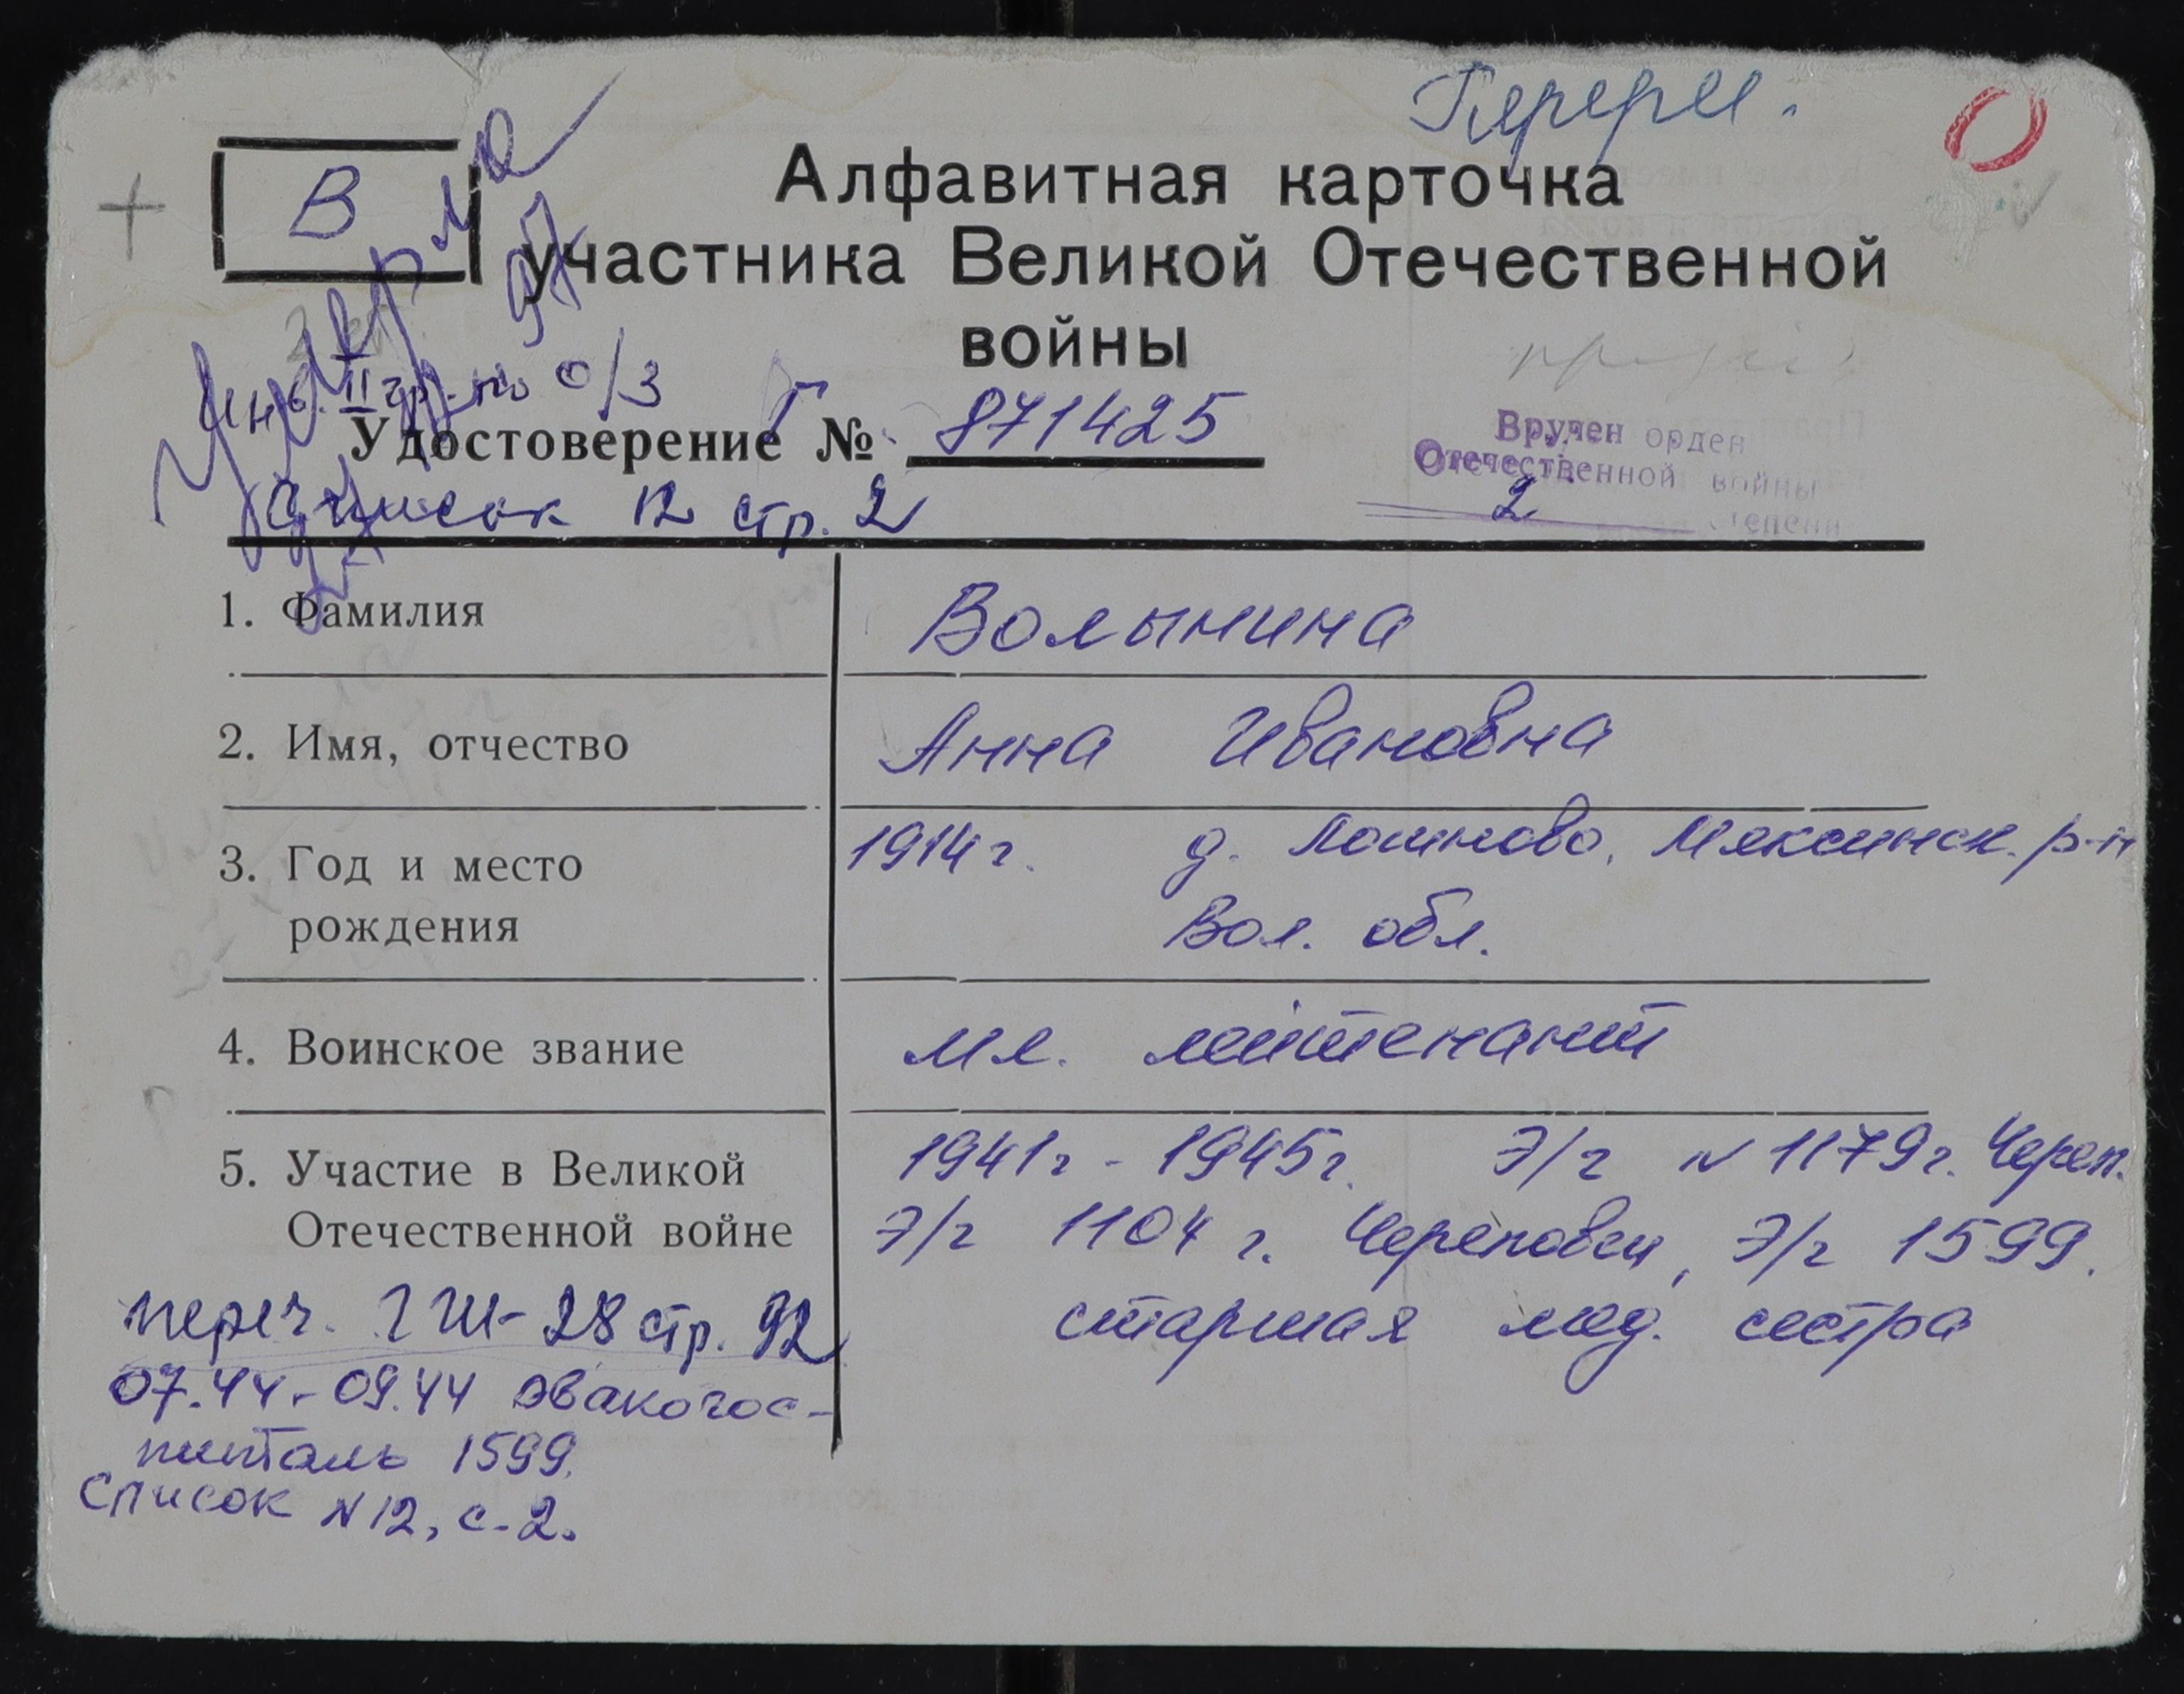 Перерег.
В
Алфавитная карточка
участника Великой Отечественной
войны
Умерла
97
Инв. II гр. по о/з
Удостоверение № 871425
Г
Список 12 стр. 2
Вручен орден
Отечественной войны
2 степени
1. Фамилия Волынина
2. Имя, отчество Анна Ивановна
3. Год и место 1914 г. д. Мяксинск. р-н
рождения Вол. обл.
4. Воинское звание мл. лейтенант
5. Участие в Великой 1941г - 1945г. Э/г N 1179 г. Череп.
Отечественной войне Э/г 1104 г. Череповец, Э/г 1599.
старшая мед. сестра
переч. ГШ-28 стр. 92
07.44-09.44 эвакогос-
питаль 1599.
Список N 12, с. 2.